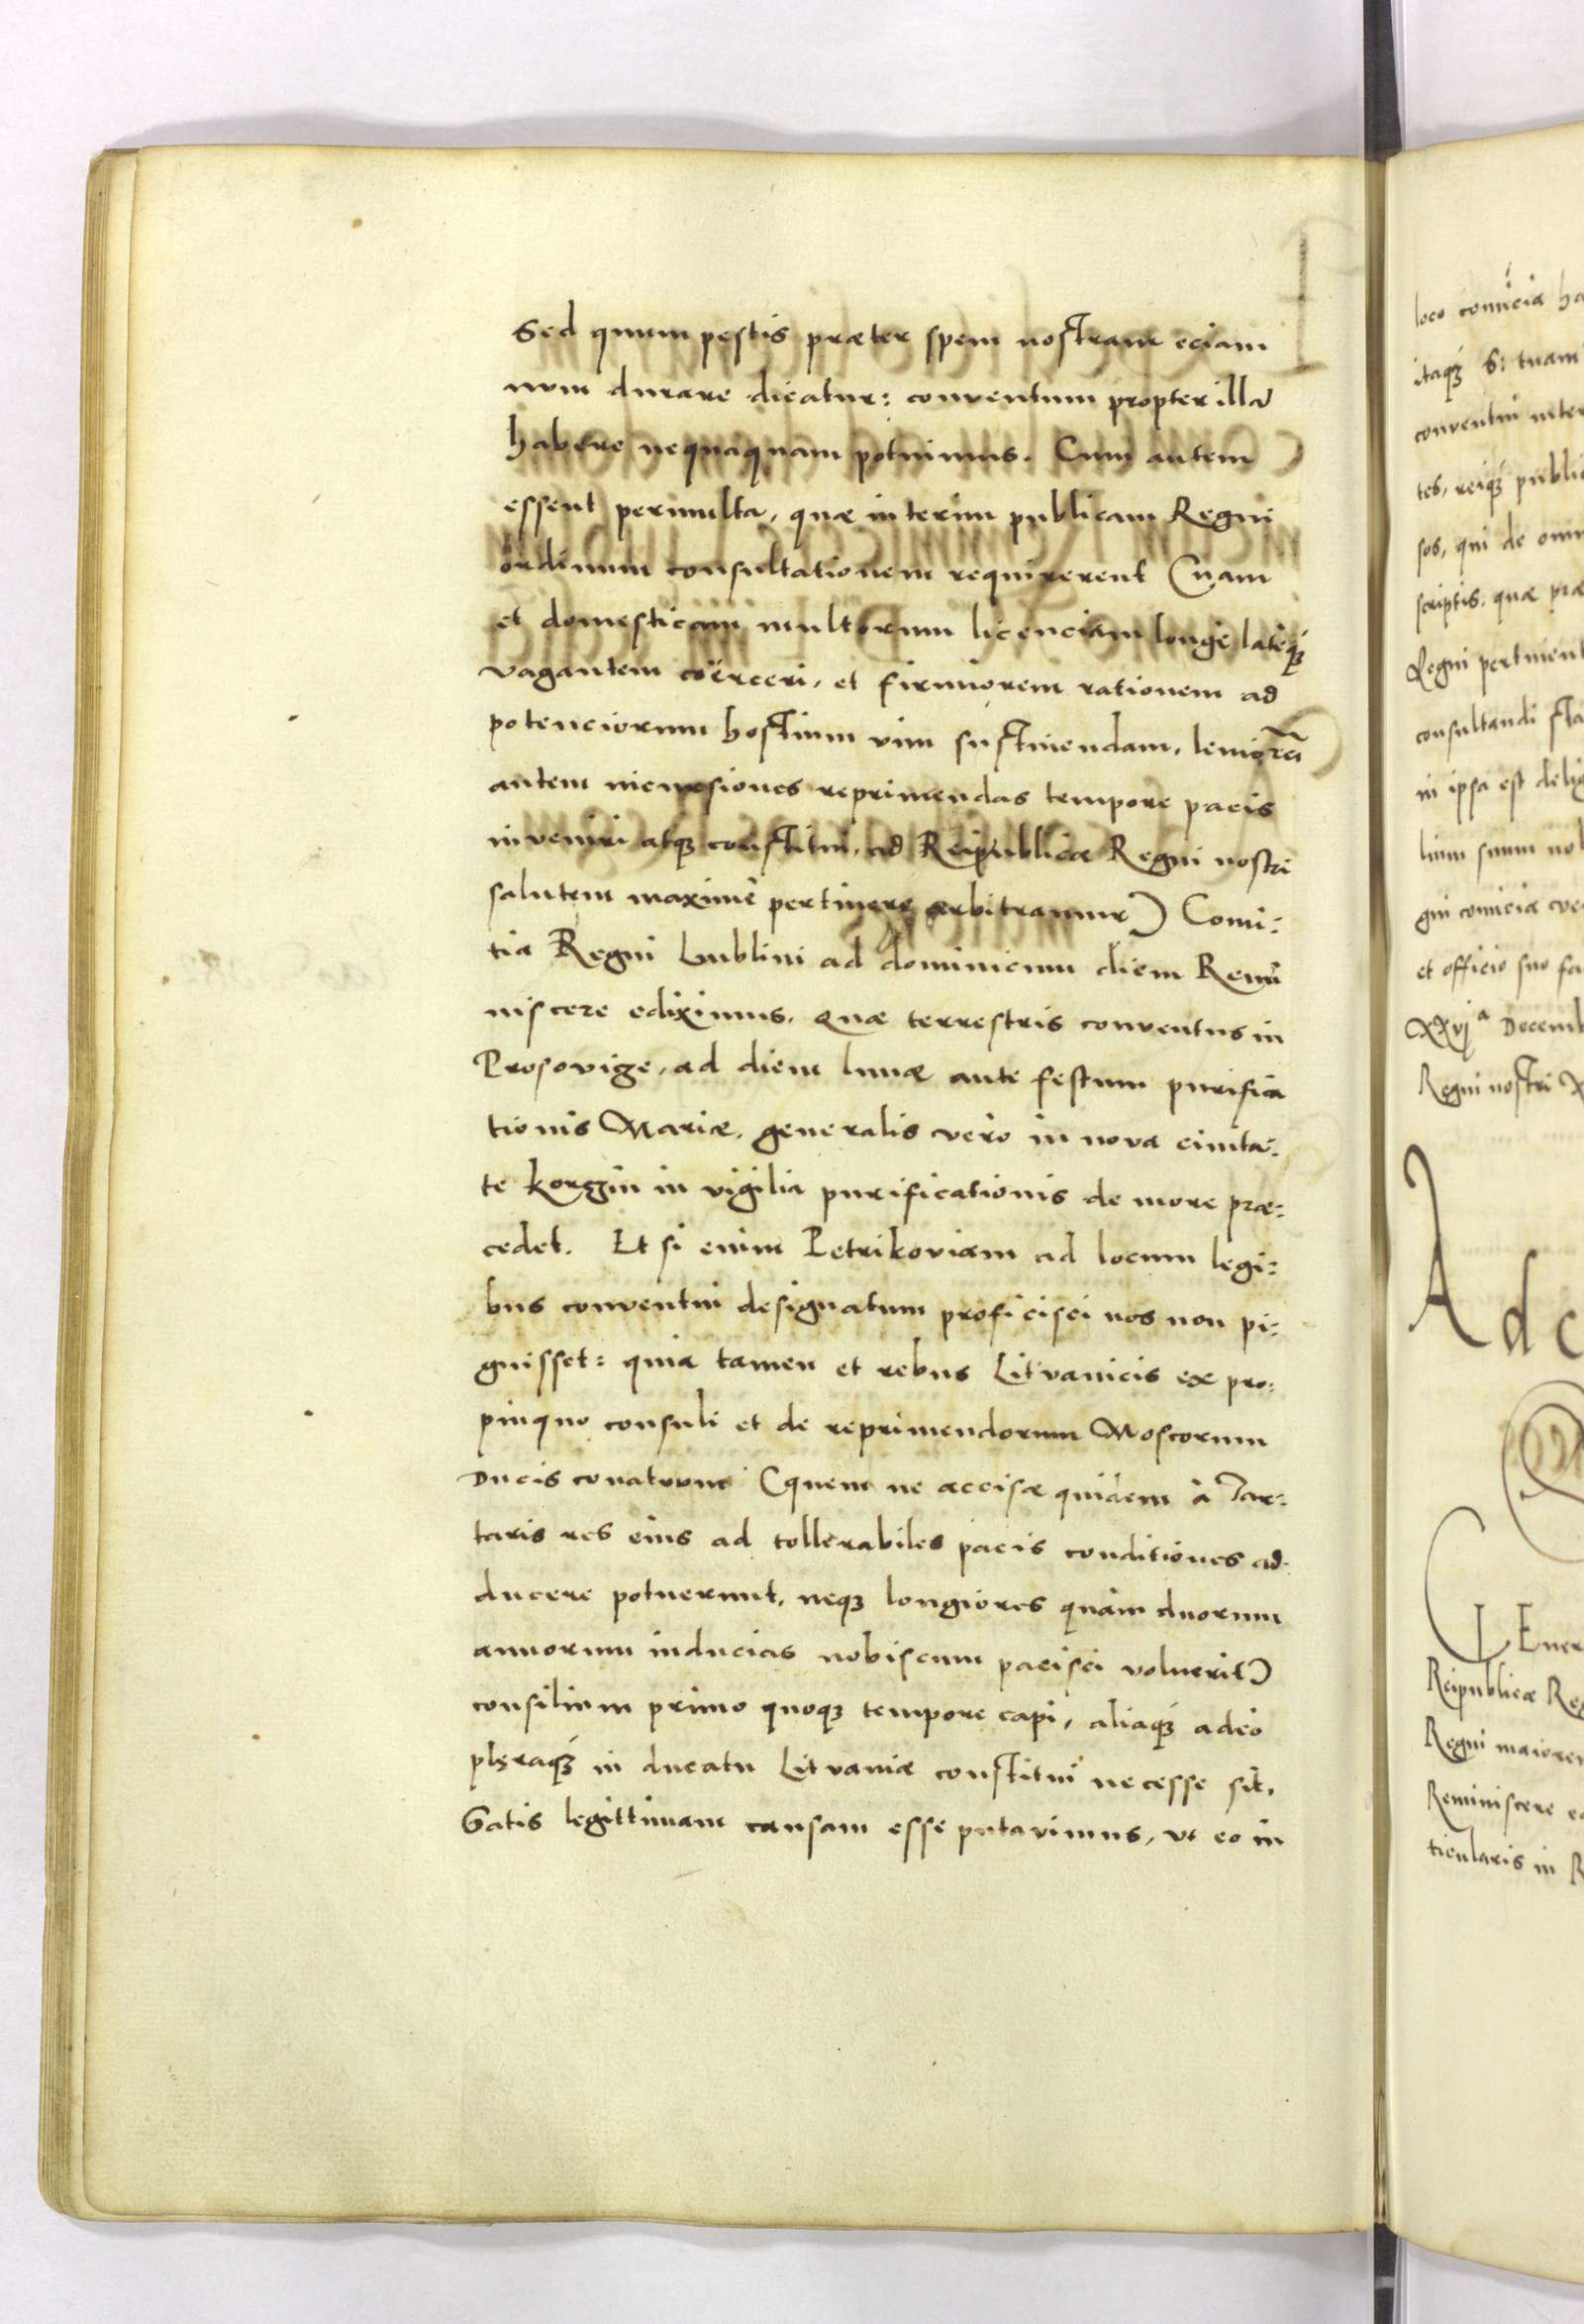 Sed quum pestis præter spem nostram eciam
num durare dicatur: conventum propter illã
habere nequaquam potuimus. Cum autem
essent permulta, quæ interim publicam Regni
ordinum consultationem requirerent (nam
et domesticam multorum licenciam longè latèq́ꝫ
vagantem coërceri, et firmiorem rationem ad
potenciorum hostium vim sustinendam, leniorũ
autem incursiones reprimendas tempore pacis
inveniri atqꝫ constitui, ad Reipublicæ Regni nostri
salutem maximè pertinere arbitramur) Comi:
tia Regni Lublini ad dominicum diem Remi
niscere ediximus. Quæ terrestris conventus in
Prosovige, ad diem lunæ ante festum purifica
tionis Mariæ, generalis vero in nova civita:
te korczin in vigilia purificationis de more præ:
cedet. Et si enim Petrikoviam ad locum legi:
bus conventui designatum proficisci nos non pi:
guisset: quia tamen et rebus Litvanicis ex pro:
pinquo consuli et de reprimendorum Moscorum
Ducis conatuum (quem ne accisæ quidem à Tar:
taris res eius ad tollerabiles pacis conditiones ad:
ducere potuerunt, neqꝫ longiores quàm duorum
annorum inducias nobiscum pacisci voluerit)
consilium primo quoqꝫ tempore capi, aliaq́ꝫ adeò
plęraq́ꝫ in ducatu Litvaniæ constitui necesse sit,
Satis legittimam causam esse putavimus, vt eo in
loco comicia
itaq́ꝫ S: tuam
conventui
tes, reiq́ꝫ
sos, qui de
scriptis, quæ
Regni
consultandi
in ipsa est
lium suum
gni comicia
et officio suo
XXvjᵃ
Regni nostri
Ad
Reipublicæ
Regni
Reminiscere
ticularis in